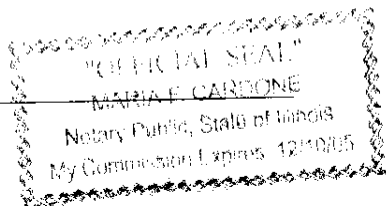 "OFFICIAL SEAL"
MARIA E. CARDONE
Notary Public, State of Illinois
My Commission Expires 12/10/05